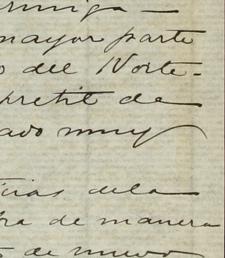 ormiga —
mayor parte
o del Norte.
pretil de
ado muy
cias dela
ra de manera
de nuevo